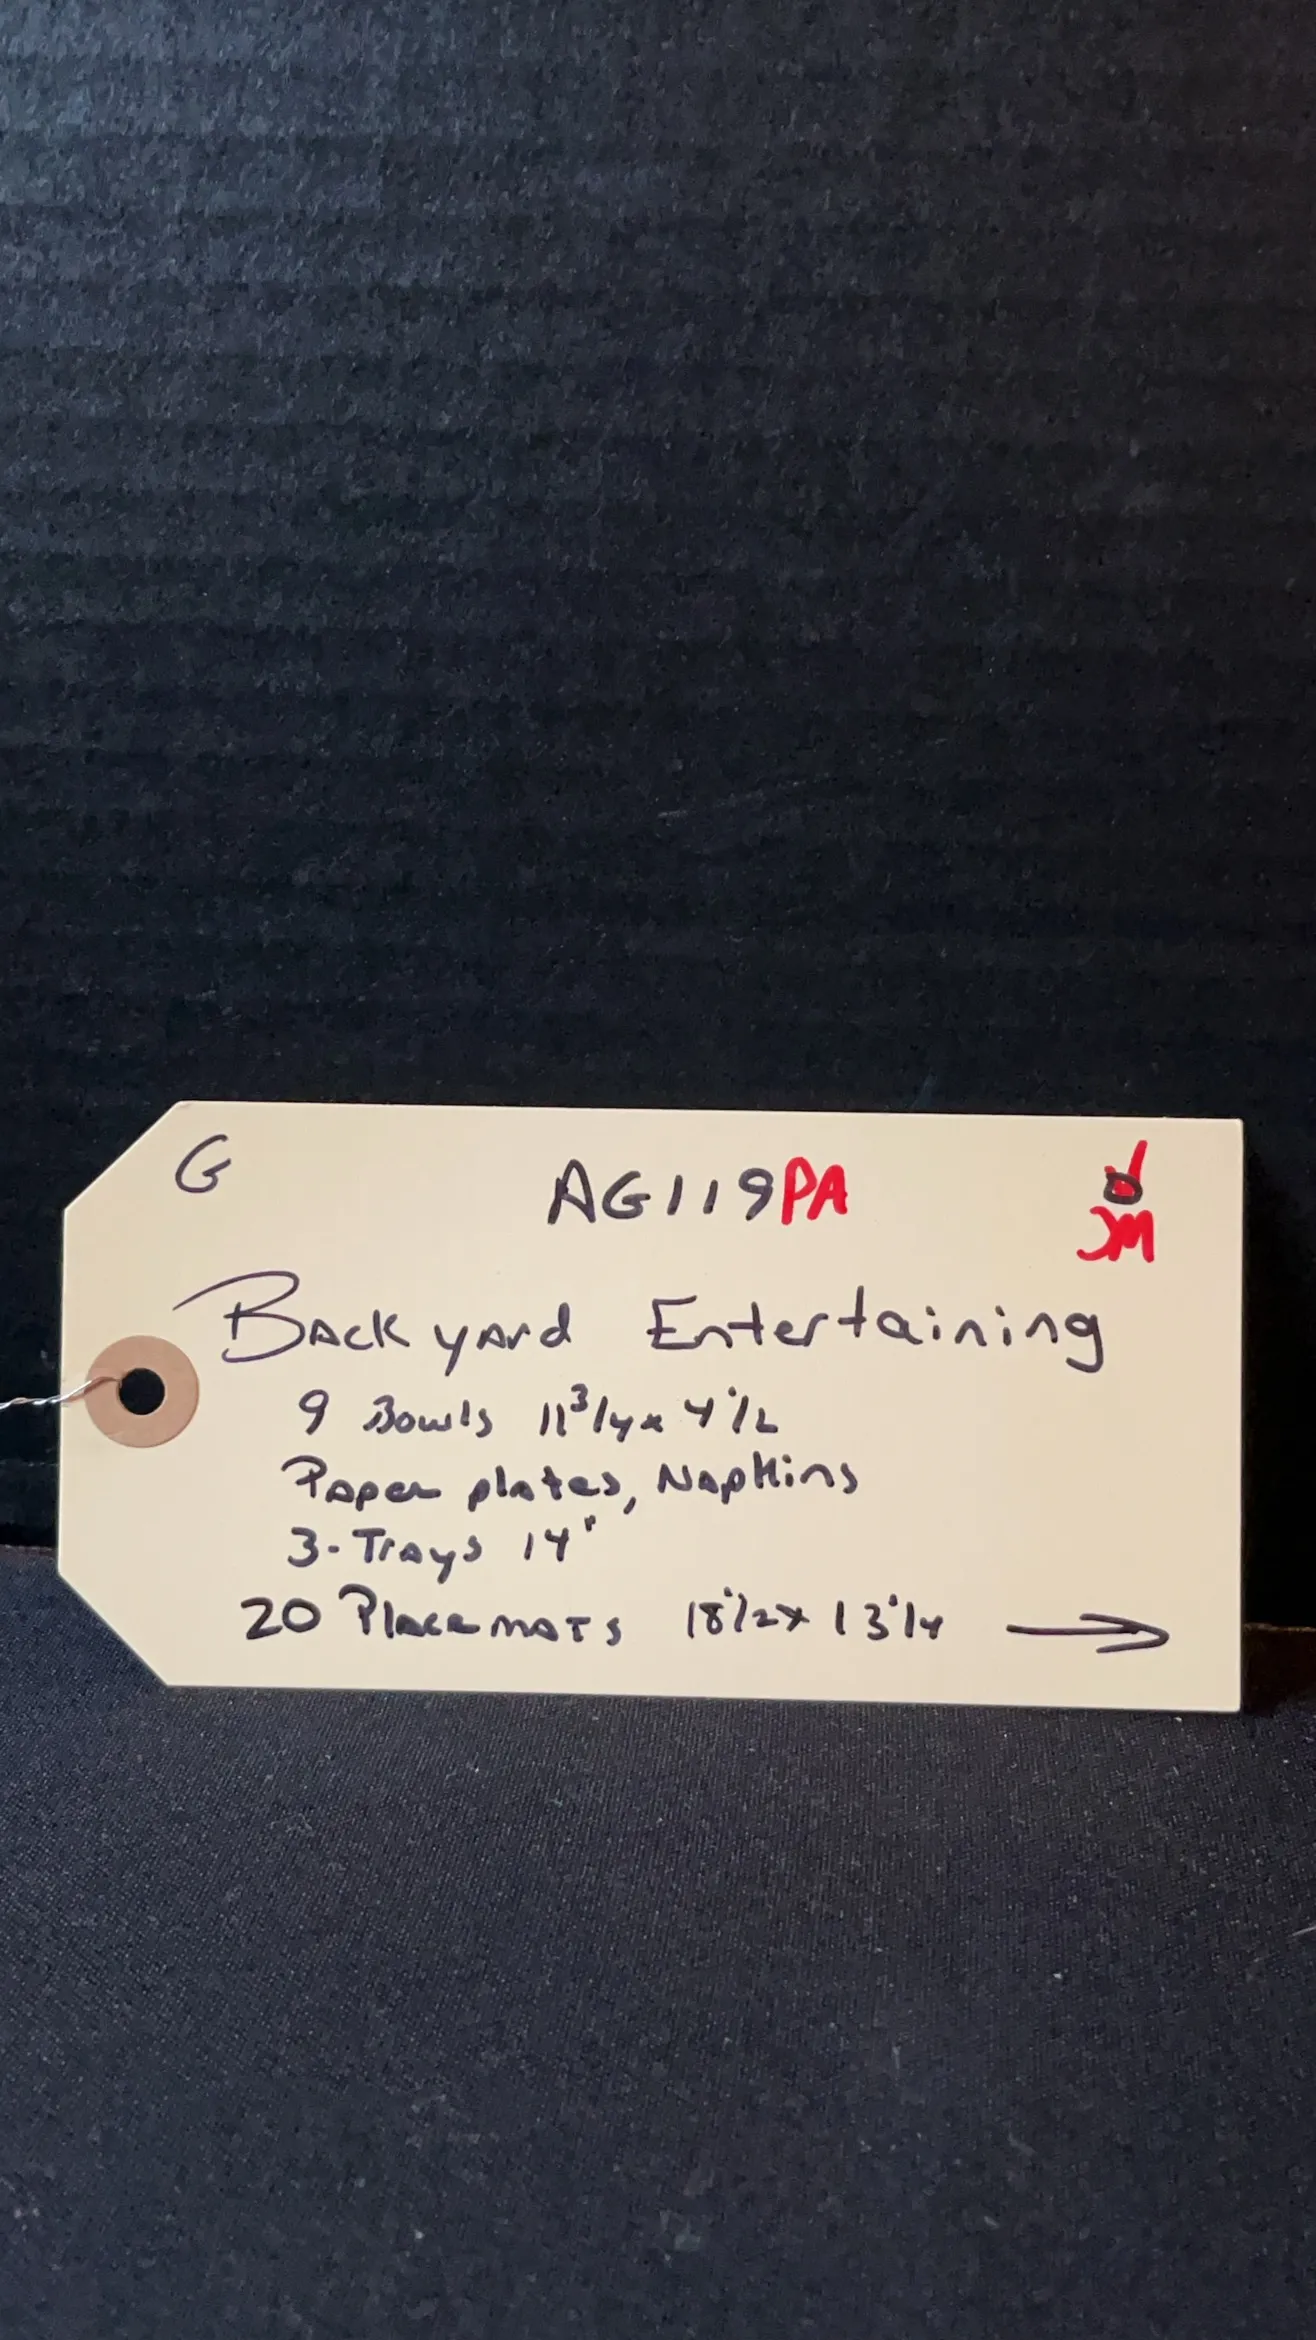 G AG119PA
JM
Backyard Entertaining
9 Bowls 11 3/4 x 4 1/2
Paper plates, Napkins
3-Trays 14"
20 Placemats 18 1/2 x 13 1/4 →